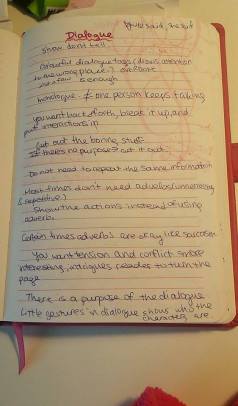 He said, she said
Dialogue
show don't tell
colourful dialogue tags (draws attention
to the wrong place) overdone
is enough
monologue - if one person keeps talking
you want back & forth, break it up and
put interactions in
Cut out the boring stuff
If there's no purpose? cut it out
Do not need to repeat the same information
Most times don't need adverbs (unnecessary
& repetitive)
Show the actions instead of using
adverbs.
Certain times adverbs are okay like sarcasm
You want tension and conflict & more
interesting, intrigues reader to turn the
page
There is a purpose of the dialogue
Little gestures in dialogue shows who the
characters are